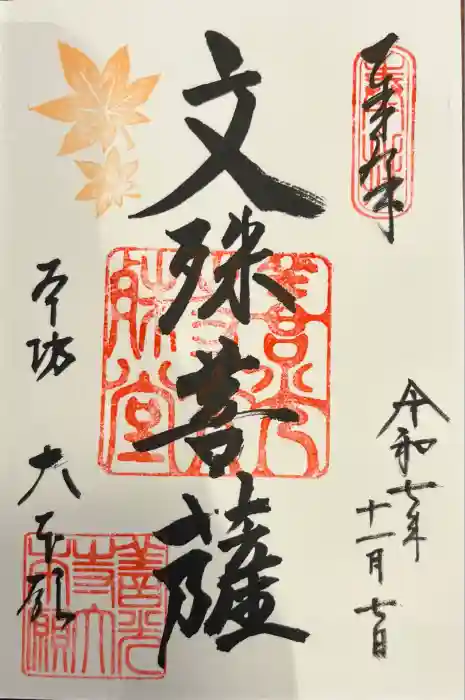 奉拝
令和七年
十一月七日
文殊菩薩
本坊
大本願